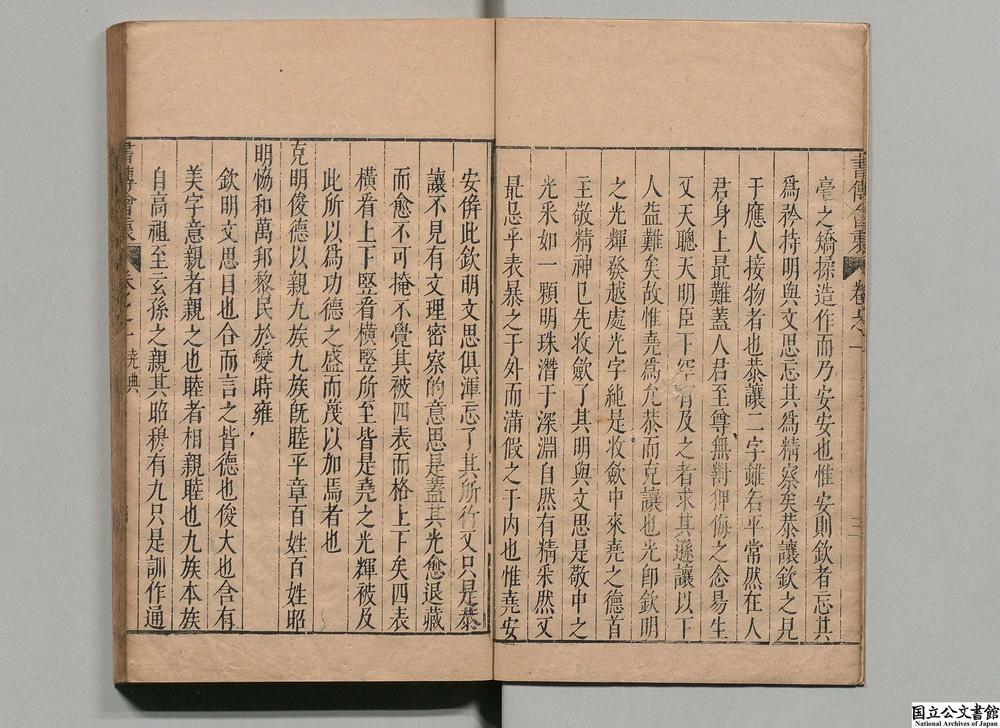 毫之矯揉造作而乃安安也惟安則欽者忘其
為矜持明與文思忘其為精察矣恭讓欽之見
于應人接物者也恭讓二字雖若平常然在人
君身上最難蓋人君至尊無對狎侮之念易生
又天聰天明臣下罕有及之者求其遜讓以下
人益難矣故惟堯為允恭而克讓也光即欽明
之光輝發越處光字純是收歛中來堯之德首
主敬精神已先收歛了其明與文思是敬中之
光采如一顆明珠潛于深淵自然有精采然又
最忌乎表暴之于外而滿假之于内也惟堯安
安俾此欽明文思俱渾忘了其所行又只是恭
讓不見有文理密察的意思是蓋其光愈退藏
而愈不可掩不覺其被四表而格上下矣四表
橫看上下竪看橫竪所至皆是堯之光輝被及
此所以為功德之盛而蔑以加焉者也
克明俊德以親九族九族既睦平章百姓百姓昭
明恊和萬邦黎民於變時雍
欽明文思目也合而言之皆德也俊大也含有
美字意親者親之也睦者相親睦也九族本族
自高祖至玄孫之親其昭穆有九只是訓作通
堯典
国立公文書館
National Archives of Japan